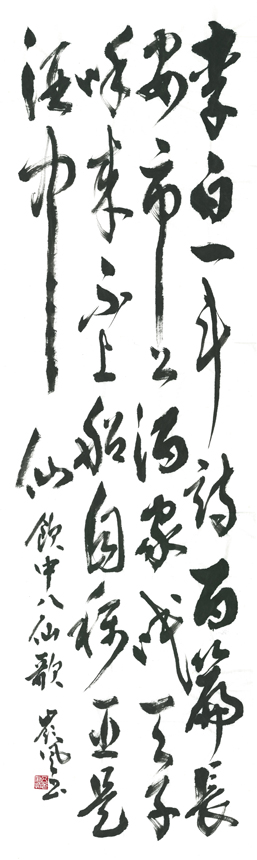 李白一斗詩百篇長
安市上酒家眠天子
呼来不上船自稱臣是
酒中仙
飲中八仙歌